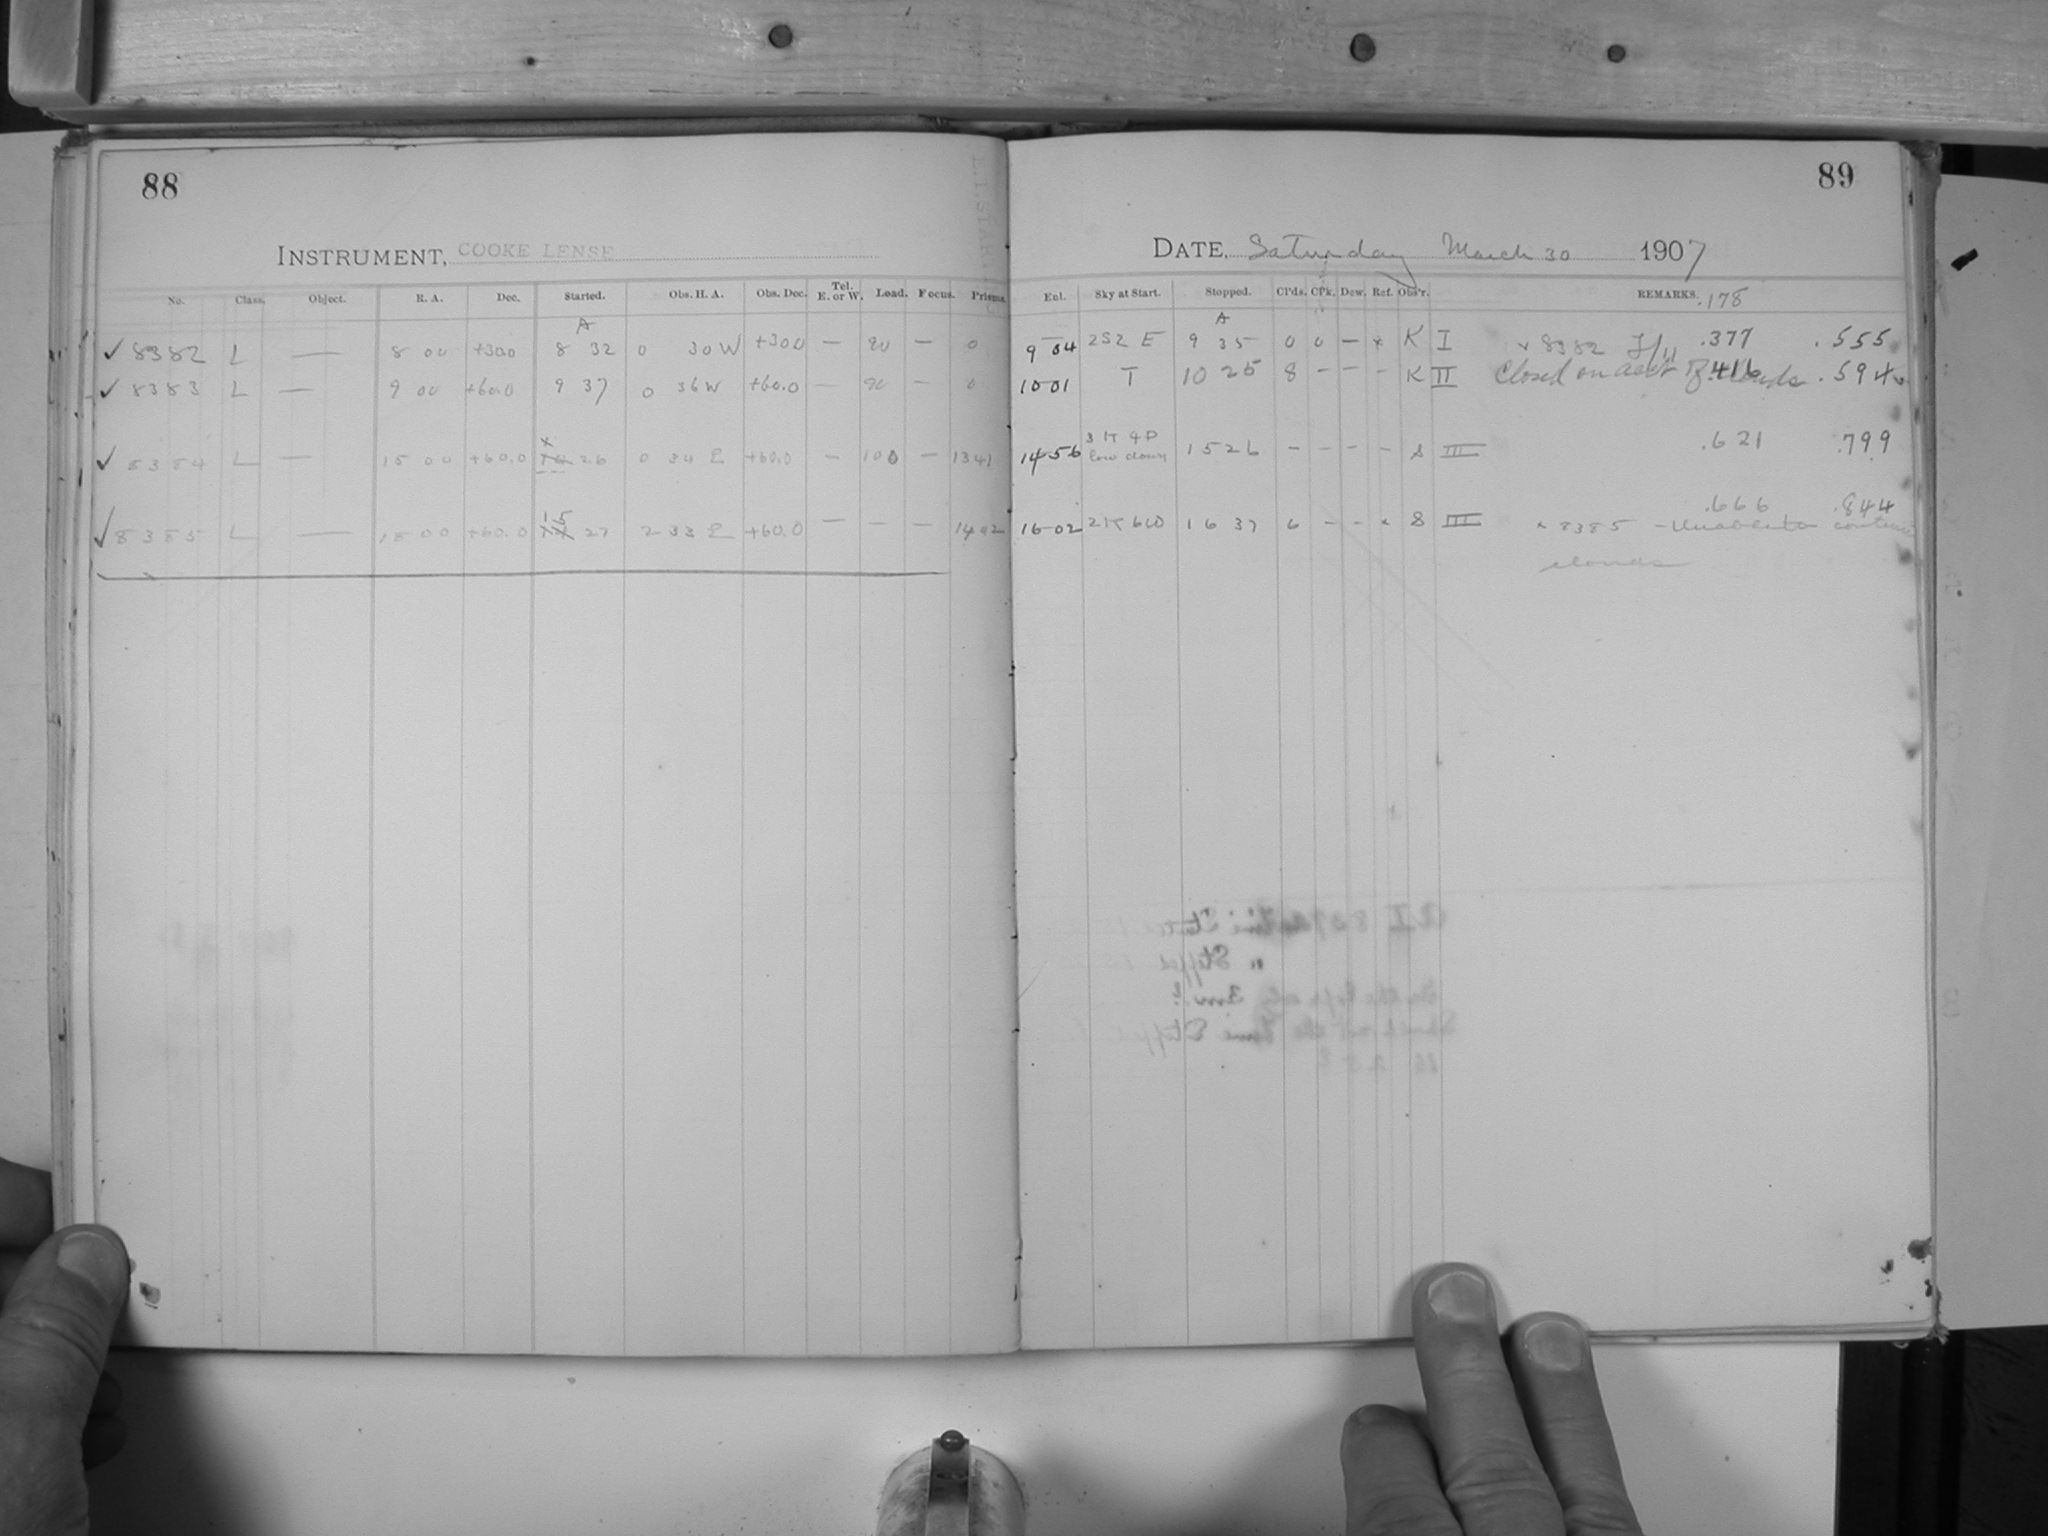 88
89
INSTRUMENT, COOKE LENSE
DATE, Saturday March 30 1907
No. Class. Object. R. A. Dec. Started. Obs. H. A. Obs. Dec. Tel. E. or W. Lead. Focus. Prisms.
Ent. Sky at Start. Stopped. Cl'ds. Cl'k. Dew. Ref. Obs'r. REMARKS. .178
A
A
✓ 8382 L — 8 00 +30.0 8 32 0 30 W +30.0 — 90 — 0
9 04 2S2 E 9 35 0 0 — x K I x 8382 .377 .555
✓ 8383 L — 9 00 +60.0 9 37 0 36 W +60.0 — 90 — 0
10 01 T 10 25 8 – – – K II Closed on acct of clouds .416 .594
✓ 8384 L — 15 00 +60.0 26 0 34 E +60.0 — 100 — 1341
14 56 low down 15 26 – – – – S III .621 .799
✓ 8385 L — 18 00 +60.0 15 27 2 33 E +60.0 — — — 1402
16 02 16 37 6 – – x S III x 8385 – Unable to continue .666 .844
clouds